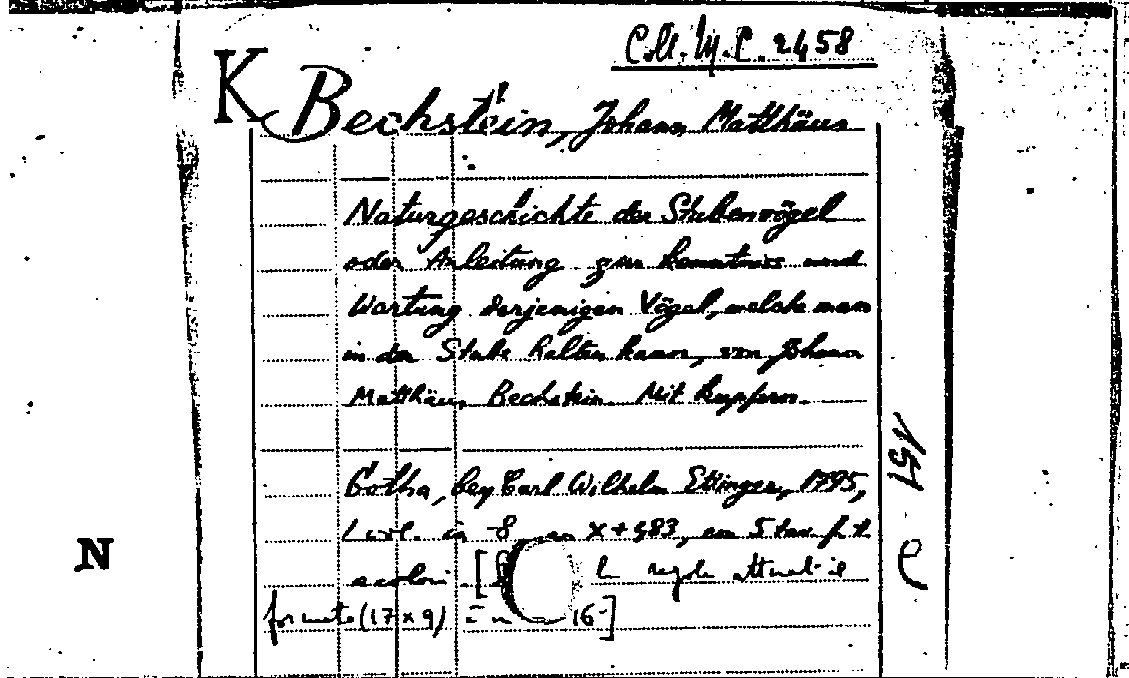 Coll. M. C. 2458
K Bechstein, Johann Matthäus
Naturgeschichte der Stubenvögel
oder Anleitung zur Kenntniss und
Wartung derjenigen Vögel, welche man
in der Stube halten kann, von Johann
Matthäus Bechstein. Mit Kupfern.
Gotha, bey Carl Wilhelm Ettinger, 1795,
1 vol. in -8 X + 483, con 5 tav. f. t.
a colori. [
formato (17 x 9) 16]
151
e
N